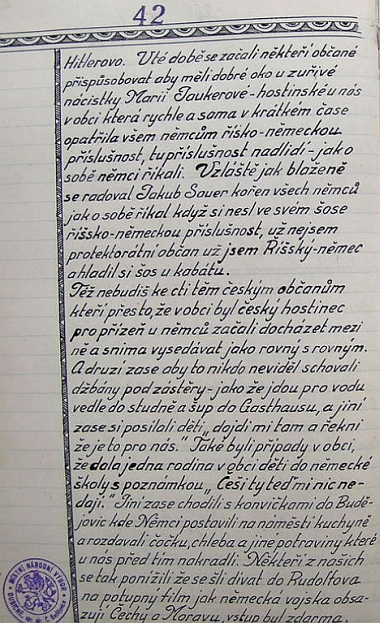 42
Hitlerovo. V té době se začali někteří občané
přispůsobovat aby měli dobré oko u zuřivé
nácistky Marii Taukerové-hostinské u nás
v obci která rychle a sama v krátkém čase
opatřila všem němcům říško-německou
příslušnost, tu příslušnost nadlidí-jak o
sobě němci říkali. Vzláště jak blaženě
se radoval Jakub Sauer kořen všech němců
jak o sobě říkal když si nesl ve svém šose
říšsko-německou příslušnost, už nejsem
protektorátní občan už jsem Říšský-němec
a hladil si šos u kabátu.
Též nebudiž ke cti těm českým občanům
kteří přesto, že v obci byl český hostinec
pro přízeň u němců začali docházet mezi
ně a snima vysedávat jako rovný s rovným.
A druzí zase aby to nikdo neviděl schovali
džbány pod zástěry-jako že jdou pro vodu
vedle do studně a šup do Gasthausu, a jiní
zase si posílali děti „dojdi mi tam a řekni
že je to pro nás." Také byli případy v obci,
že dala jedna rodina v obci děti do německé
školy s poznámkou „Češi ty teď mi nic ne-
dají." Jiní zase chodili s konvičkami do Budě-
jovic kde Němci postavili na náměstí kuchyně
a rozdávali čočku, chleba a jiné potraviny které
u nás před tím nakradli. Někteří z našich
se tak ponížili že se šli dívat do Rudolfova
na potupný film jak německá vojska obsa-
zují Čechy a Moravu, vstup byl zdarma.
MÍSTNÍ NÁRODNÍ VÝBOR